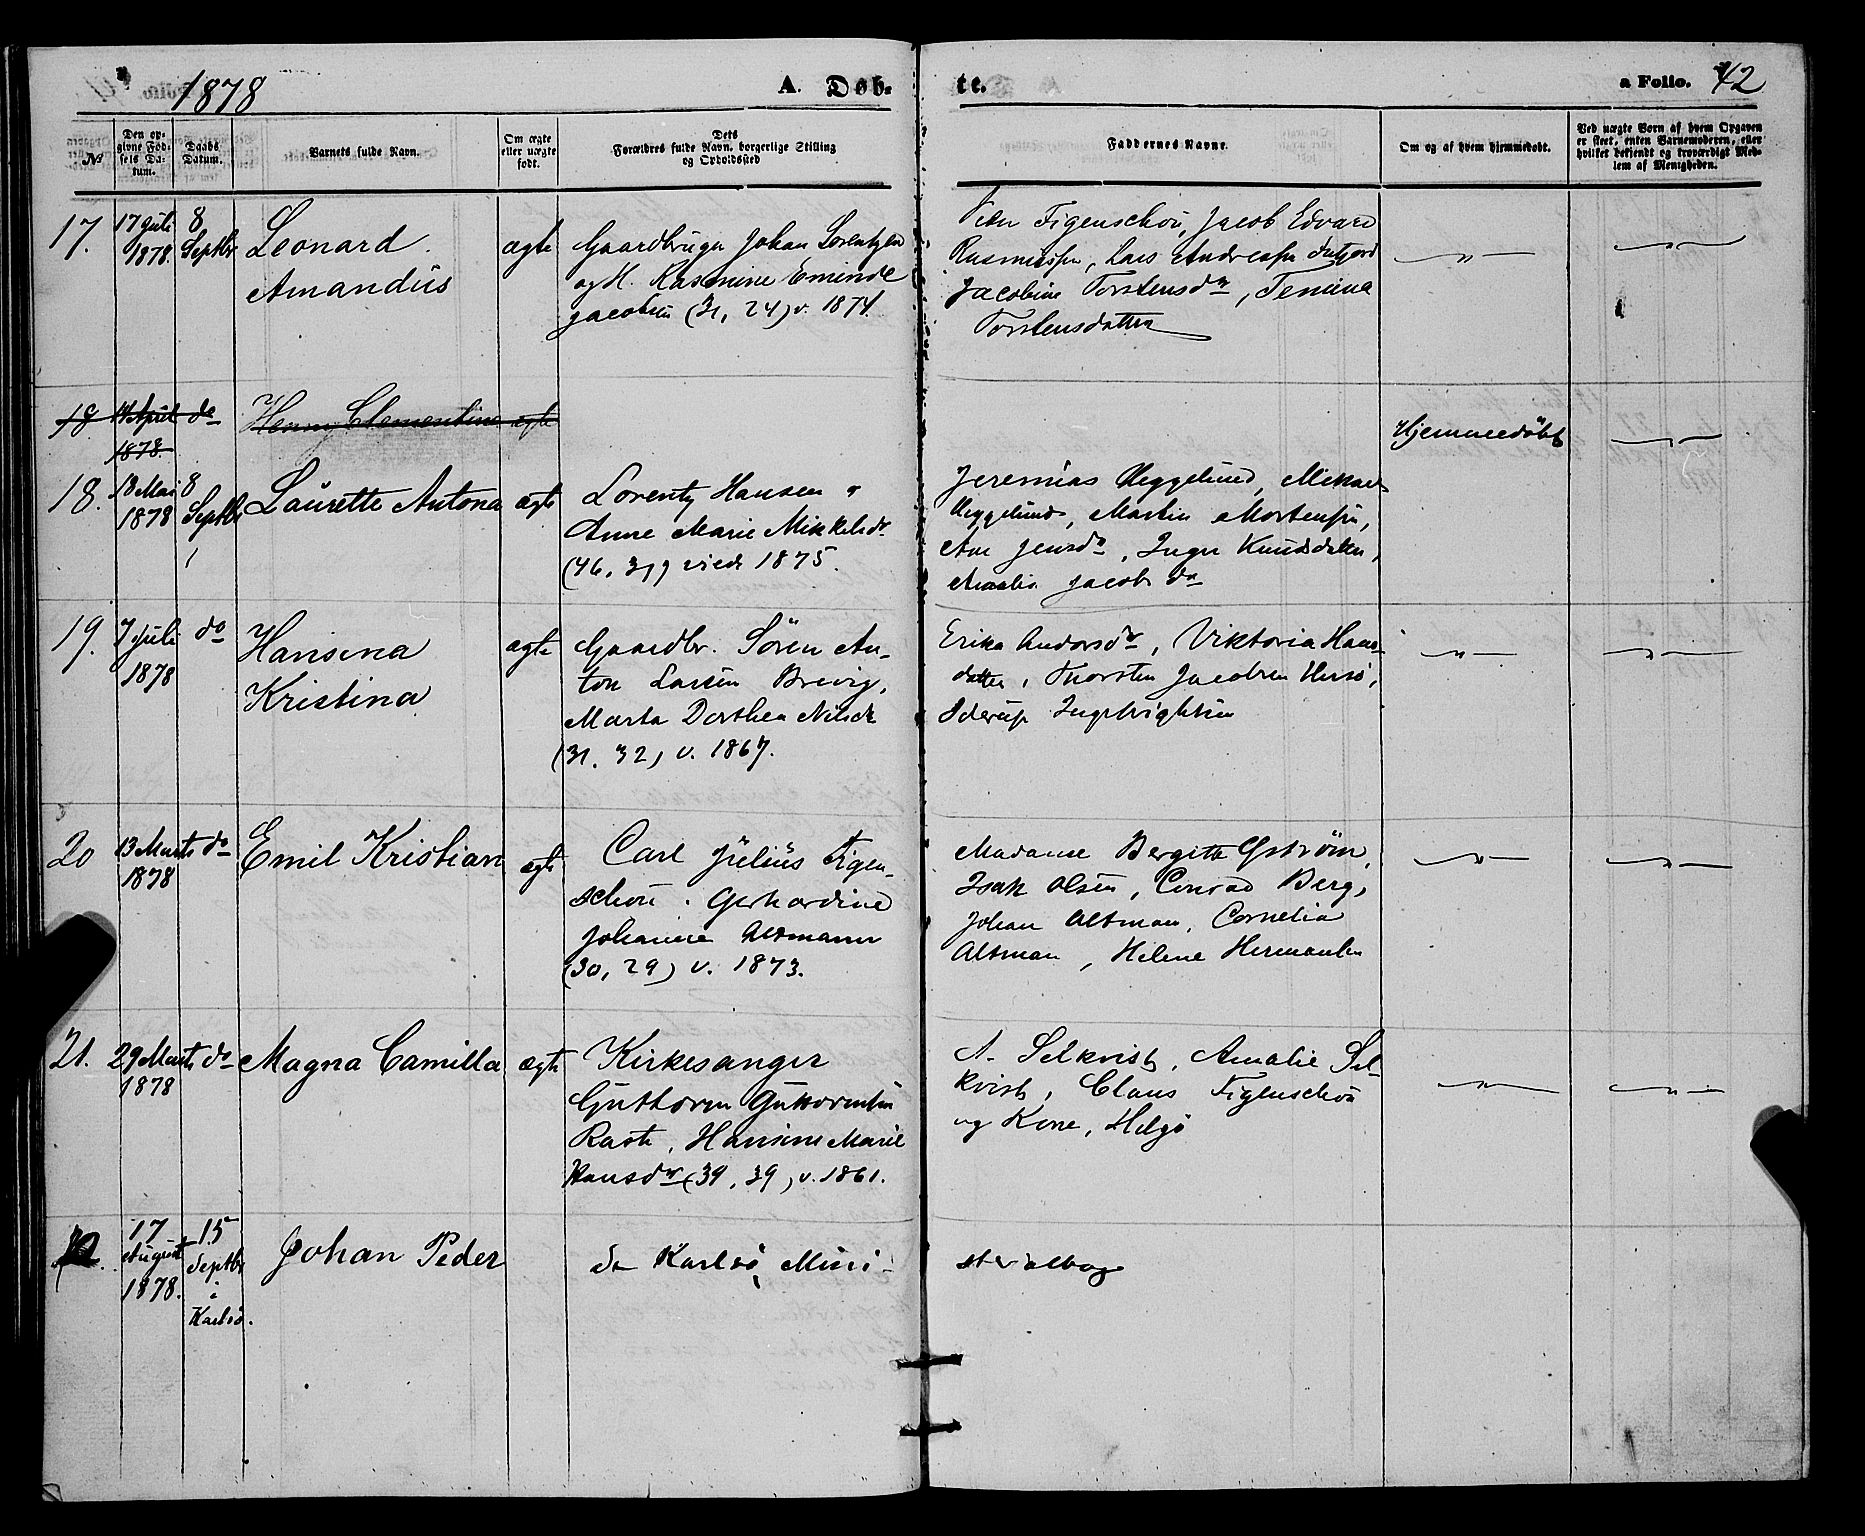 1878
A. Døb-
te.
a Folio. 42
№
Den op-
givne Fød-
sels Da-
tum.
Daabs
Datum.
Barnets fulde Navn.
Om ægte
eller uægte
født.
Dets
Forældres fulde Navn, borgerlige Stilling
og Opholdssted
Faddernes Navne.
Om og af hvem hjemmedøbt.
Ved uægte Børn af hvem Opgaven
er skeet, enten Barnemoderen, eller
hvilket bekjendt og troværdigt Med-
lem af Menigheden.
17.
17 Juli
1878.
8
Septbr
Leonard
Amandus
ægte
Gaardbruger Johan Lorentzen
og H. Rasmine Eminde
Jacobsen (31, 24) v. 1874.
Figenschou, Jacob Edvard
Rasmussen, Lars Andreassen
Jacobine Torstensdr, Tenina
Torstensdatter
18
14 April
1878.
do
Henny Clementine
ægte
Hjemmedøbt
18.
18 Mai
1878
8
Septbr
Laurette Antona
ægte
Lorentz Hansen o
Anne Marie Mikkelsdr
(46, 31) viede 1875.
Jeremias Heggelund, Mikael
Heggelund, Martin Mortensen,
Ane Jensdr, Inger Knudsdatter,
Amalia Jacobsdr
19.
7 Juli
1878
do
Hansina
Kristina
ægte
Gaardbr. Sören An-
ton Larsen Brevig,
Marta Dorthea Nilsdr
(31. 32) v. 1867.
Erika Andorsdr, Viktoria Hans-
datter, Thorsten Jacobsen
Ingebrigtsen
20
13 Marts
1878
do
Emil Kristian
ægte
Carl Julius Figen-
schou. Gerhardine
Johanne Altmann
(30, 29) v. 1873.
Madame Bergitte Gström,
Isak Olsen, Conrad Berg,
Johan Altman, Cornelia
Altman, Helene Hermansen
21.
29 Marts
1878
do
Magna Camilla
ægte
Kirkesanger
Guttorm Guttormsen
Rasti, Hansine Marie
Hansdr (39, 39) v. 1861.
A. Selkvist, Amalie Sel-
kvist, Claus Figenschou
og Kone, Helgö
17
August
1878.
15
Septbr
i
Karlsö.
Johan Peder
se Karlsö Mini-
sterialbog